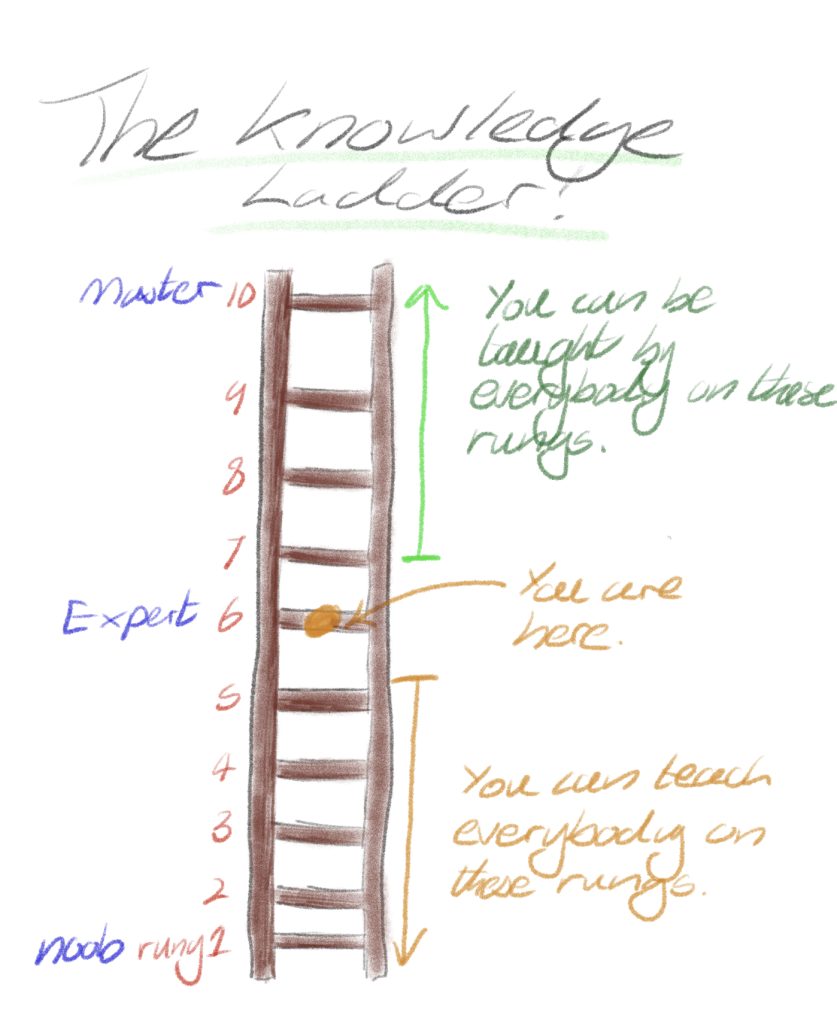 The knowledge
Ladder!
Master 10
You can be
taught by
everybody on these
rungs.
9
8
7
Expert 6
You are
here.
5
4
You can teach
everybody on
these rungs.
3
2
noob rung 1